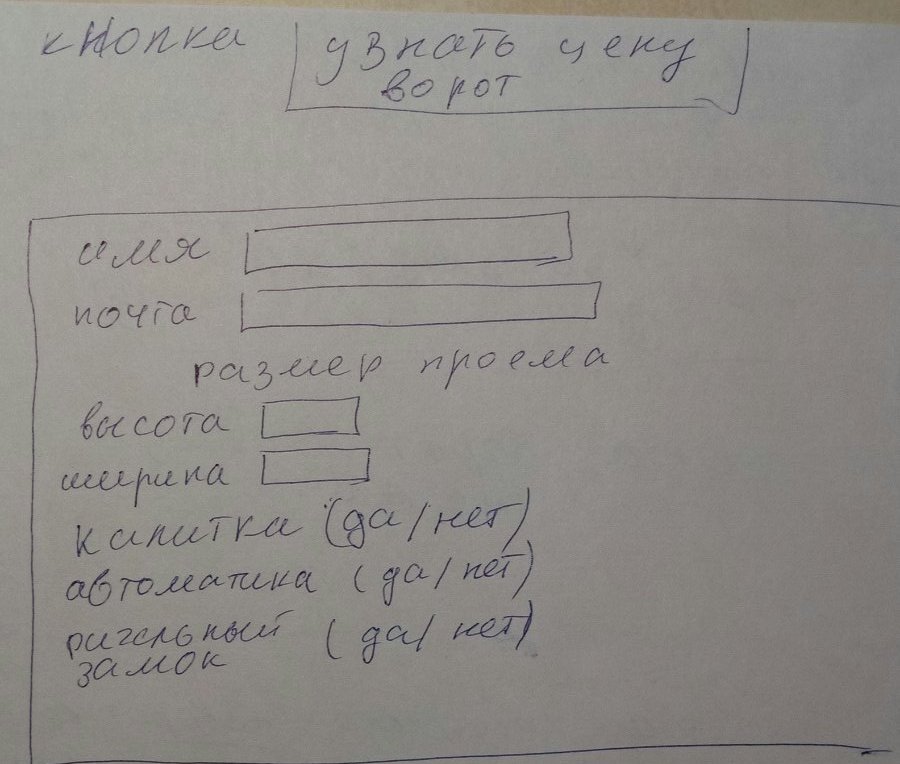 кнопка узнать цену
ворот
имя
почта
размер проема
высота
ширина
калитка (да/нет)
автоматика (да/нет)
ригельный (да/нет)
замок